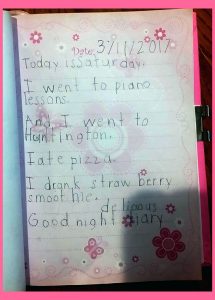 Date: 3/11/2017
Today is Saturday.
I went to piano
lessons.
And I went to
Huntington.
I ate pizza.
I drank straw berry
smoothie.
delicous
Good night diary